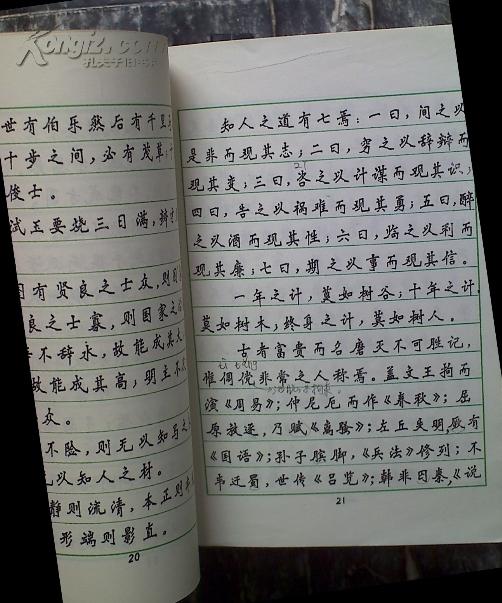 Kongfz
孔夫子旧书网
世有伯乐然后有千里
十步之间,必有茂草;十
俊士。
试玉要烧三日满,辨才
国有贤良之士众,则国
良之士寡,则国家之
不辞水,故能成其大
故能成其高,明主不
众。
不险,则无以知马之
无以知人之材。
静则流清,本正则
形端则影直。
20
知人之道有七焉:一曰,间之以
是非而现其志;二曰,穷之以辞辩而
现其变;三曰,咨之以计谋而现其识;
四曰,告之以祸难而现其勇;五曰,醉
之以酒而现其性;六曰,临之以利而
现其廉;七曰,期之以事而现其信。
一年之计,莫如树谷;十年之计,
莫如树木,终身之计,莫如树人。
古者富贵而名磨灭不可胜记,
惟倜傥非常之人称焉。盖文王拘而
演《周易》;仲尼厄而作《春秋》;屈
原放逐,乃赋《离骚》;左丘失明,厥有
《国语》;孙子膑脚,《兵法》修列;不
韦迁蜀,世传《吕览》;韩非囚秦,《说
21